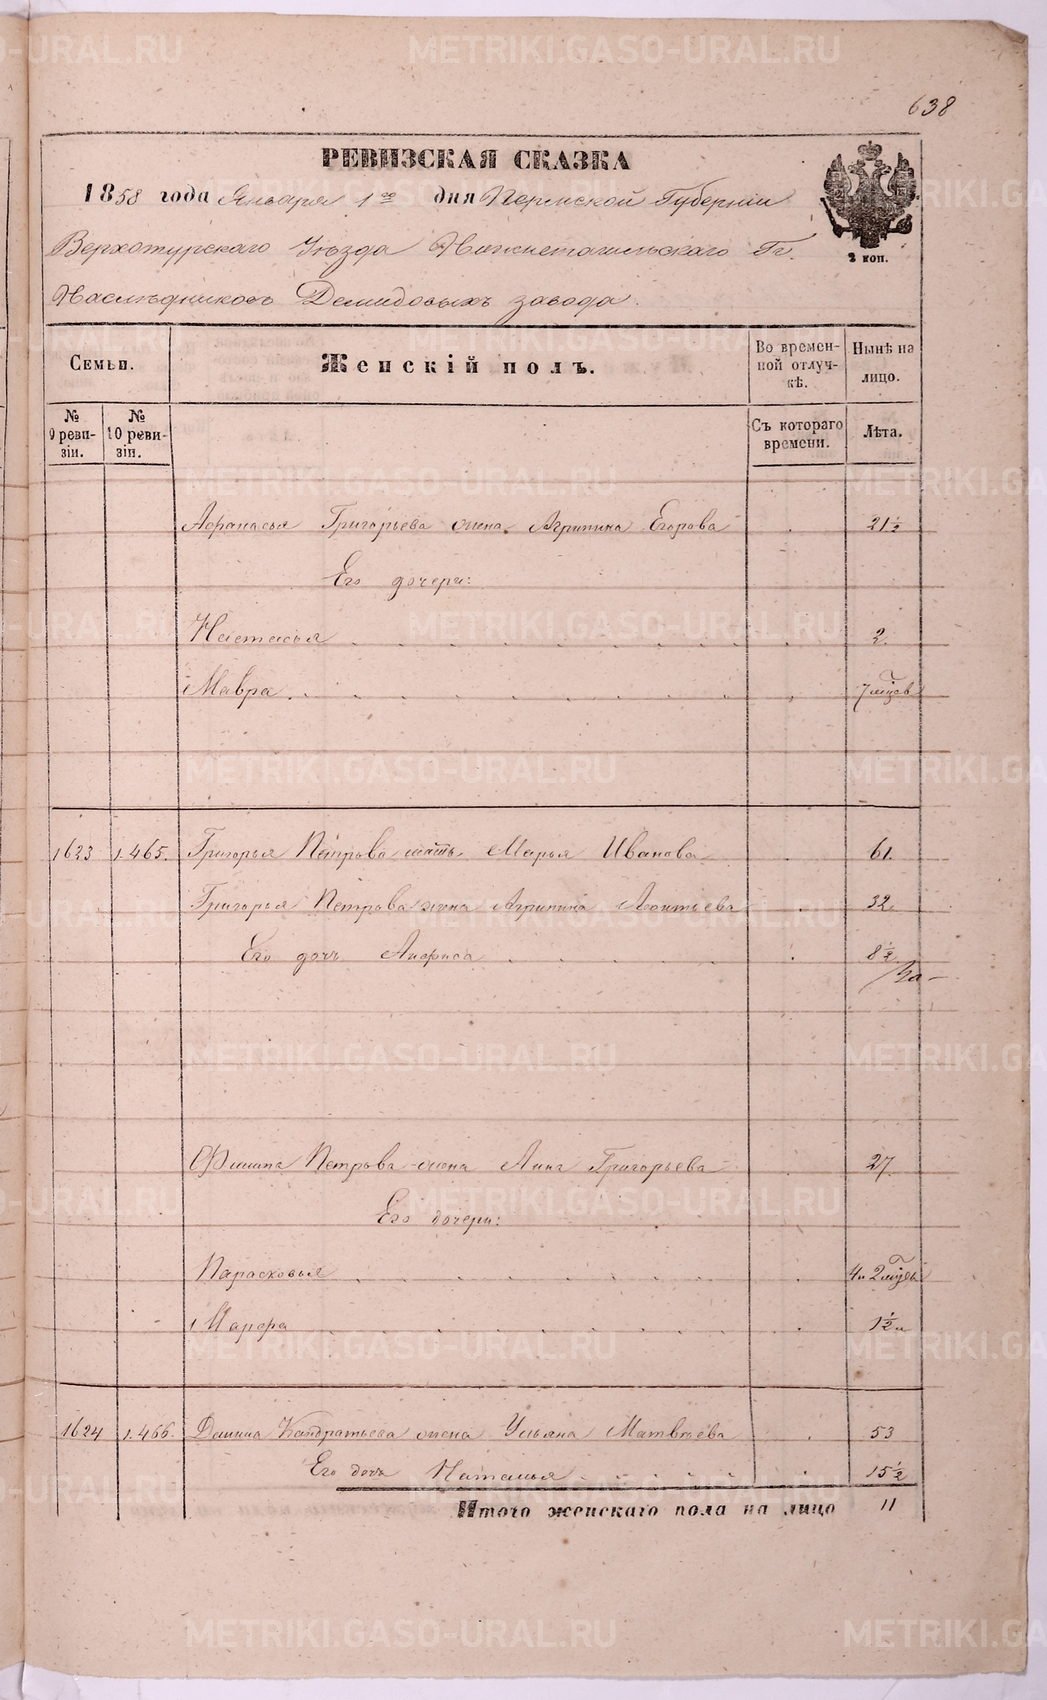 638
РЕВИЗСКАЯ СКАЗКА
1858 года Января 1го дня Пермской Губернии
Верхотурскаго Уѣзда Нижнетагильскаго Гг.
2 коп.
Наслѣдниковъ Демидовыхъ завода.
Семьи.
Женскій полъ.
Во временной отлучкѣ.
Нынѣ на лицо.
№ 9 ревизіи.
№ 10 ревизіи.
Съ котораго времени.
Лѣта.
Афанасья Григорьева жена Агрипина Егорова 21½
Его дочери:
Настасья 2.
Мавра 7 мцов
1623 1.465. Григорья Петрова мать Марья Иванова 61.
Григорья Петрова жена Агрипина Леонтьева 32.
Его дочь Анфиса 8½
Филипа Петрова жена Анна Григорьева 27.
Его дочери:
Парасковья 4 и 2 мцы
Марфа 1½
1624 1.466. Данила Кандратьева жена Ульяна Матвѣева 53
Его дочь Наталья 15½
Итого женскаго пола на лицо 11
METRIKI.GASO-URAL.RU